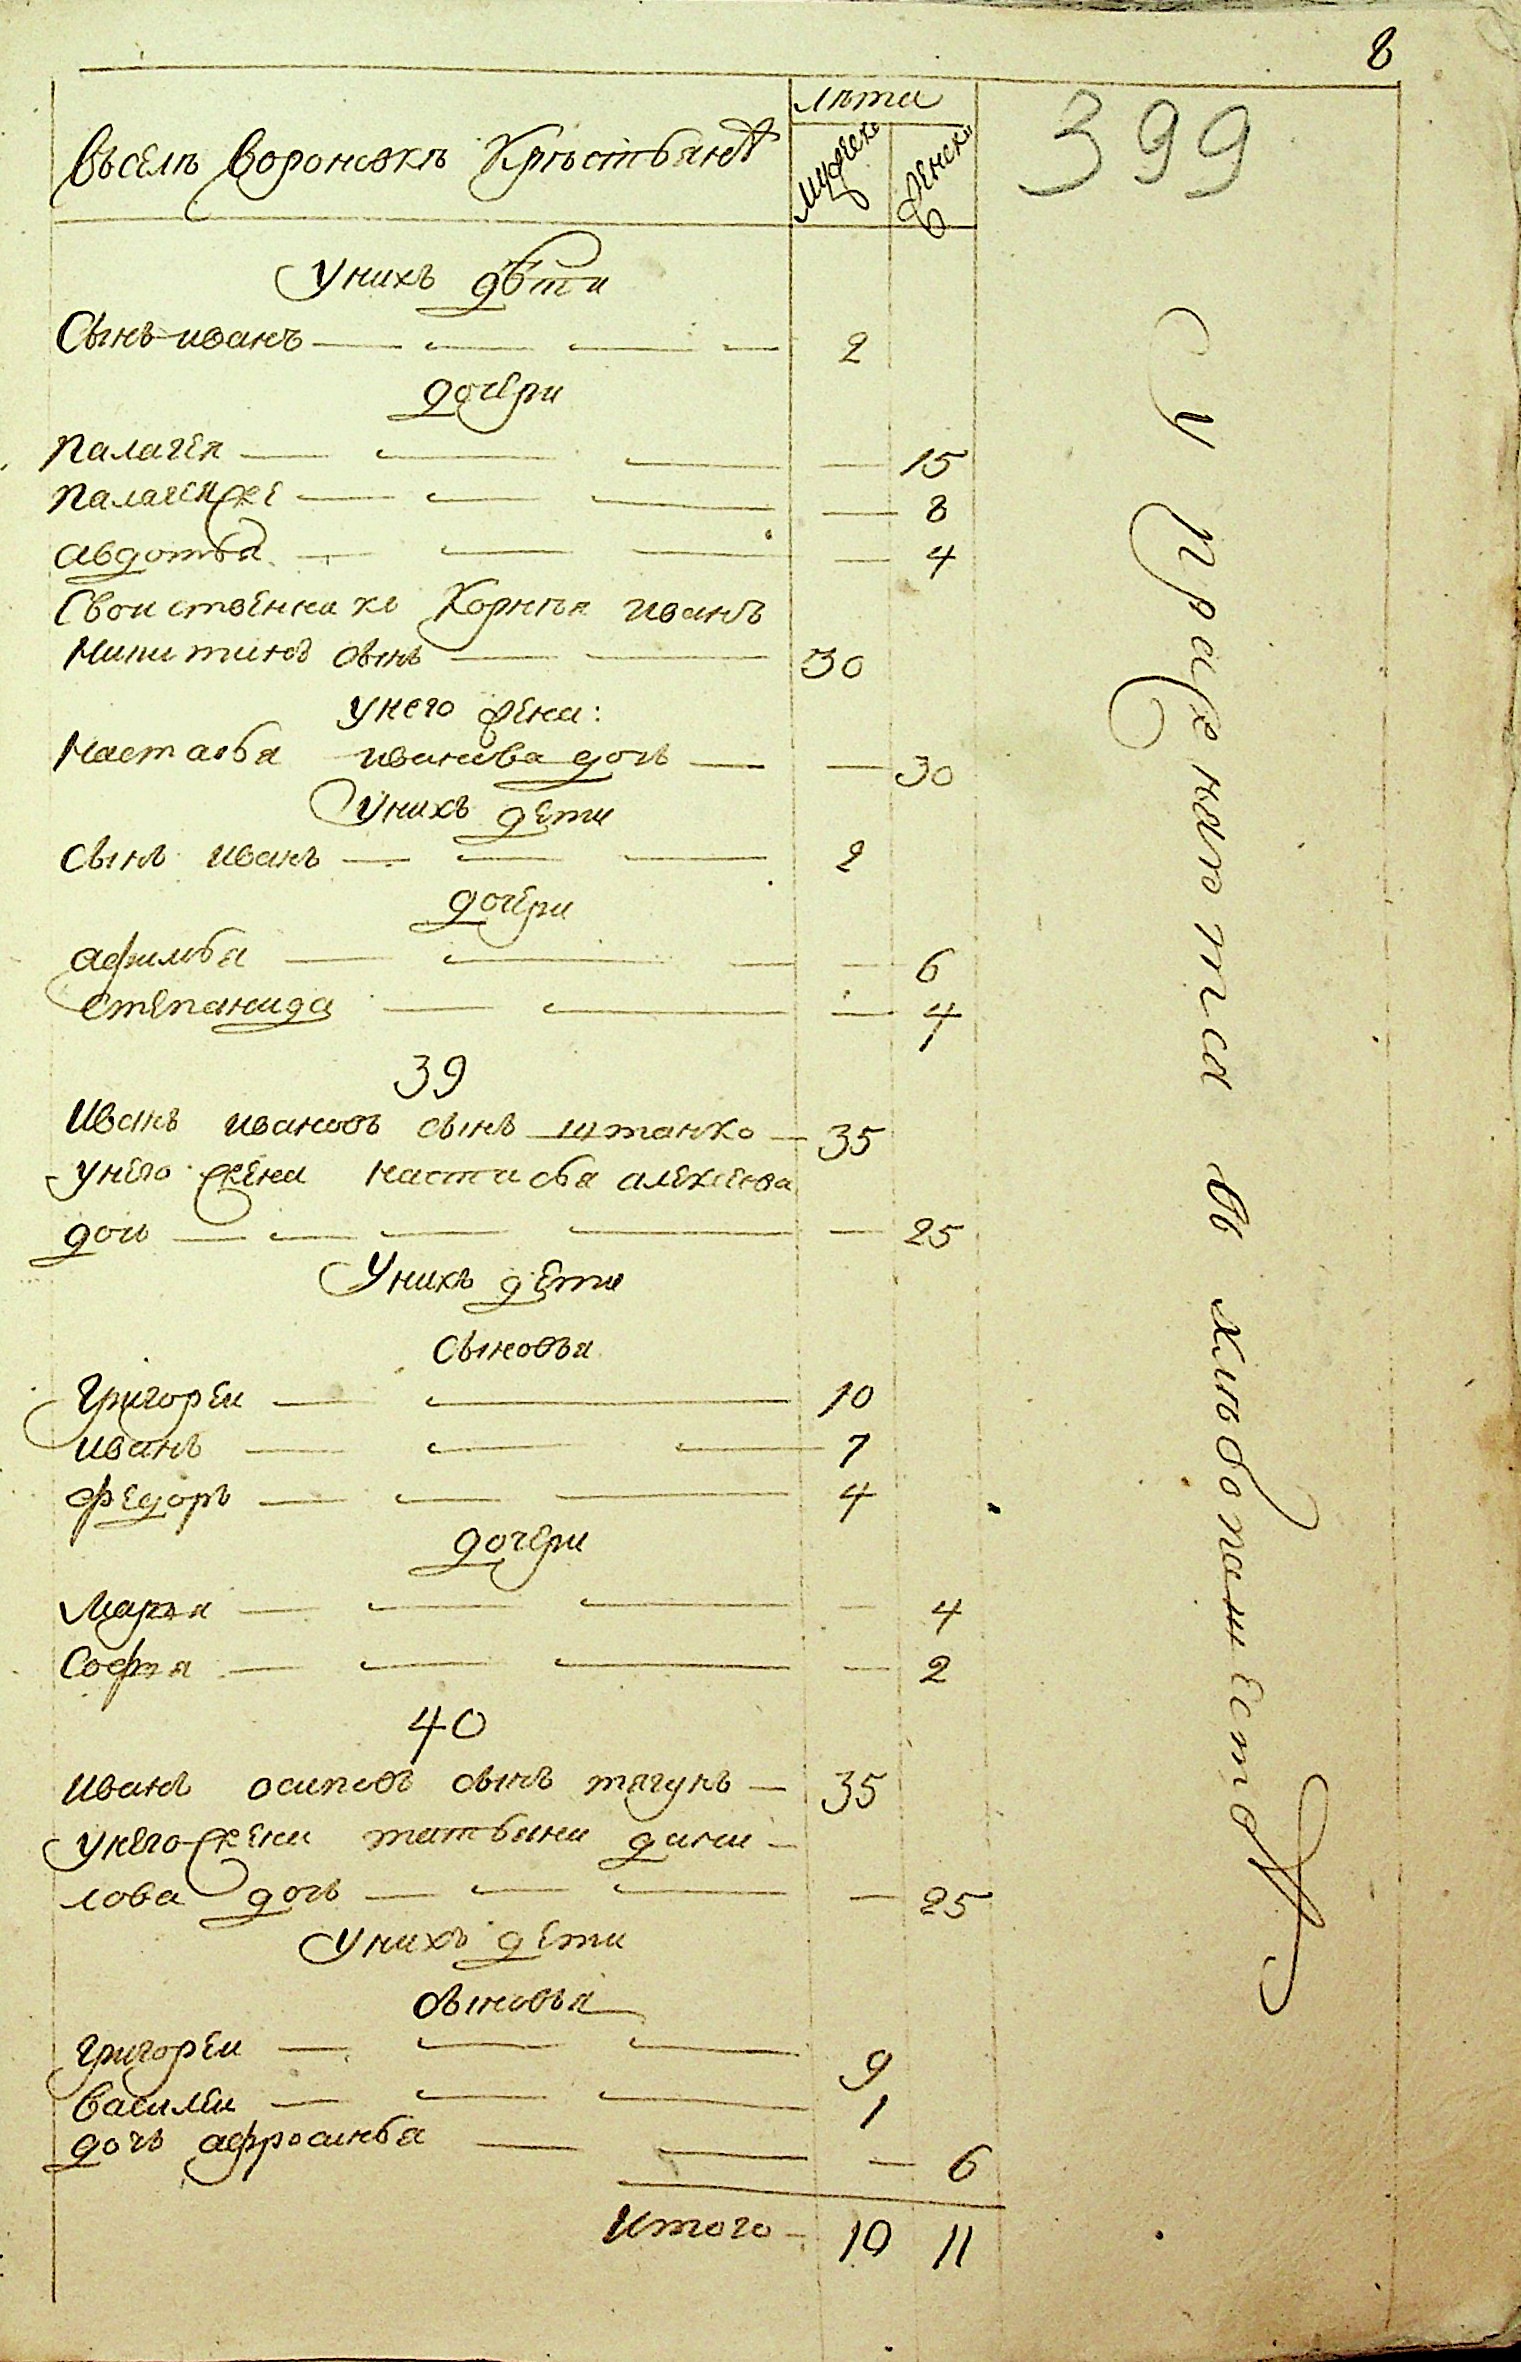 8
399
лѣта
Въселѣ Вороновкѣ Крѣстьянѣ
мужеска
женска
Унихъ дѣти
Сынъ иванъ 2
дочери
Палагея 15
Палагея же 8
авдотья 4
Свойственникъ Корнѣй ивановъ
Никитинъ сынъ 30
унего жена:
Настасья иванова дочь 30
Унихъ дети
Сынъ иванъ 2
дочери
афимья 6
Степанида 4
39
Иванъ ивановъ сынъ штанко 35
унего жена настасья алексеева
дочь 25
Унихъ дети
Сыновья
Григореи 10
иванъ 7
федоръ 4
дочери
Марья 4
Софья 2
40
иванъ осиповъ сынъ тягунъ 35
унего жена татьяна дани
лова дочь 25
Унихъ дети
сыновья
григореи 9
василеи 1
дочь афросинья 6
Итого 10 11
Упражняютца въ хлѣбопашествѣ